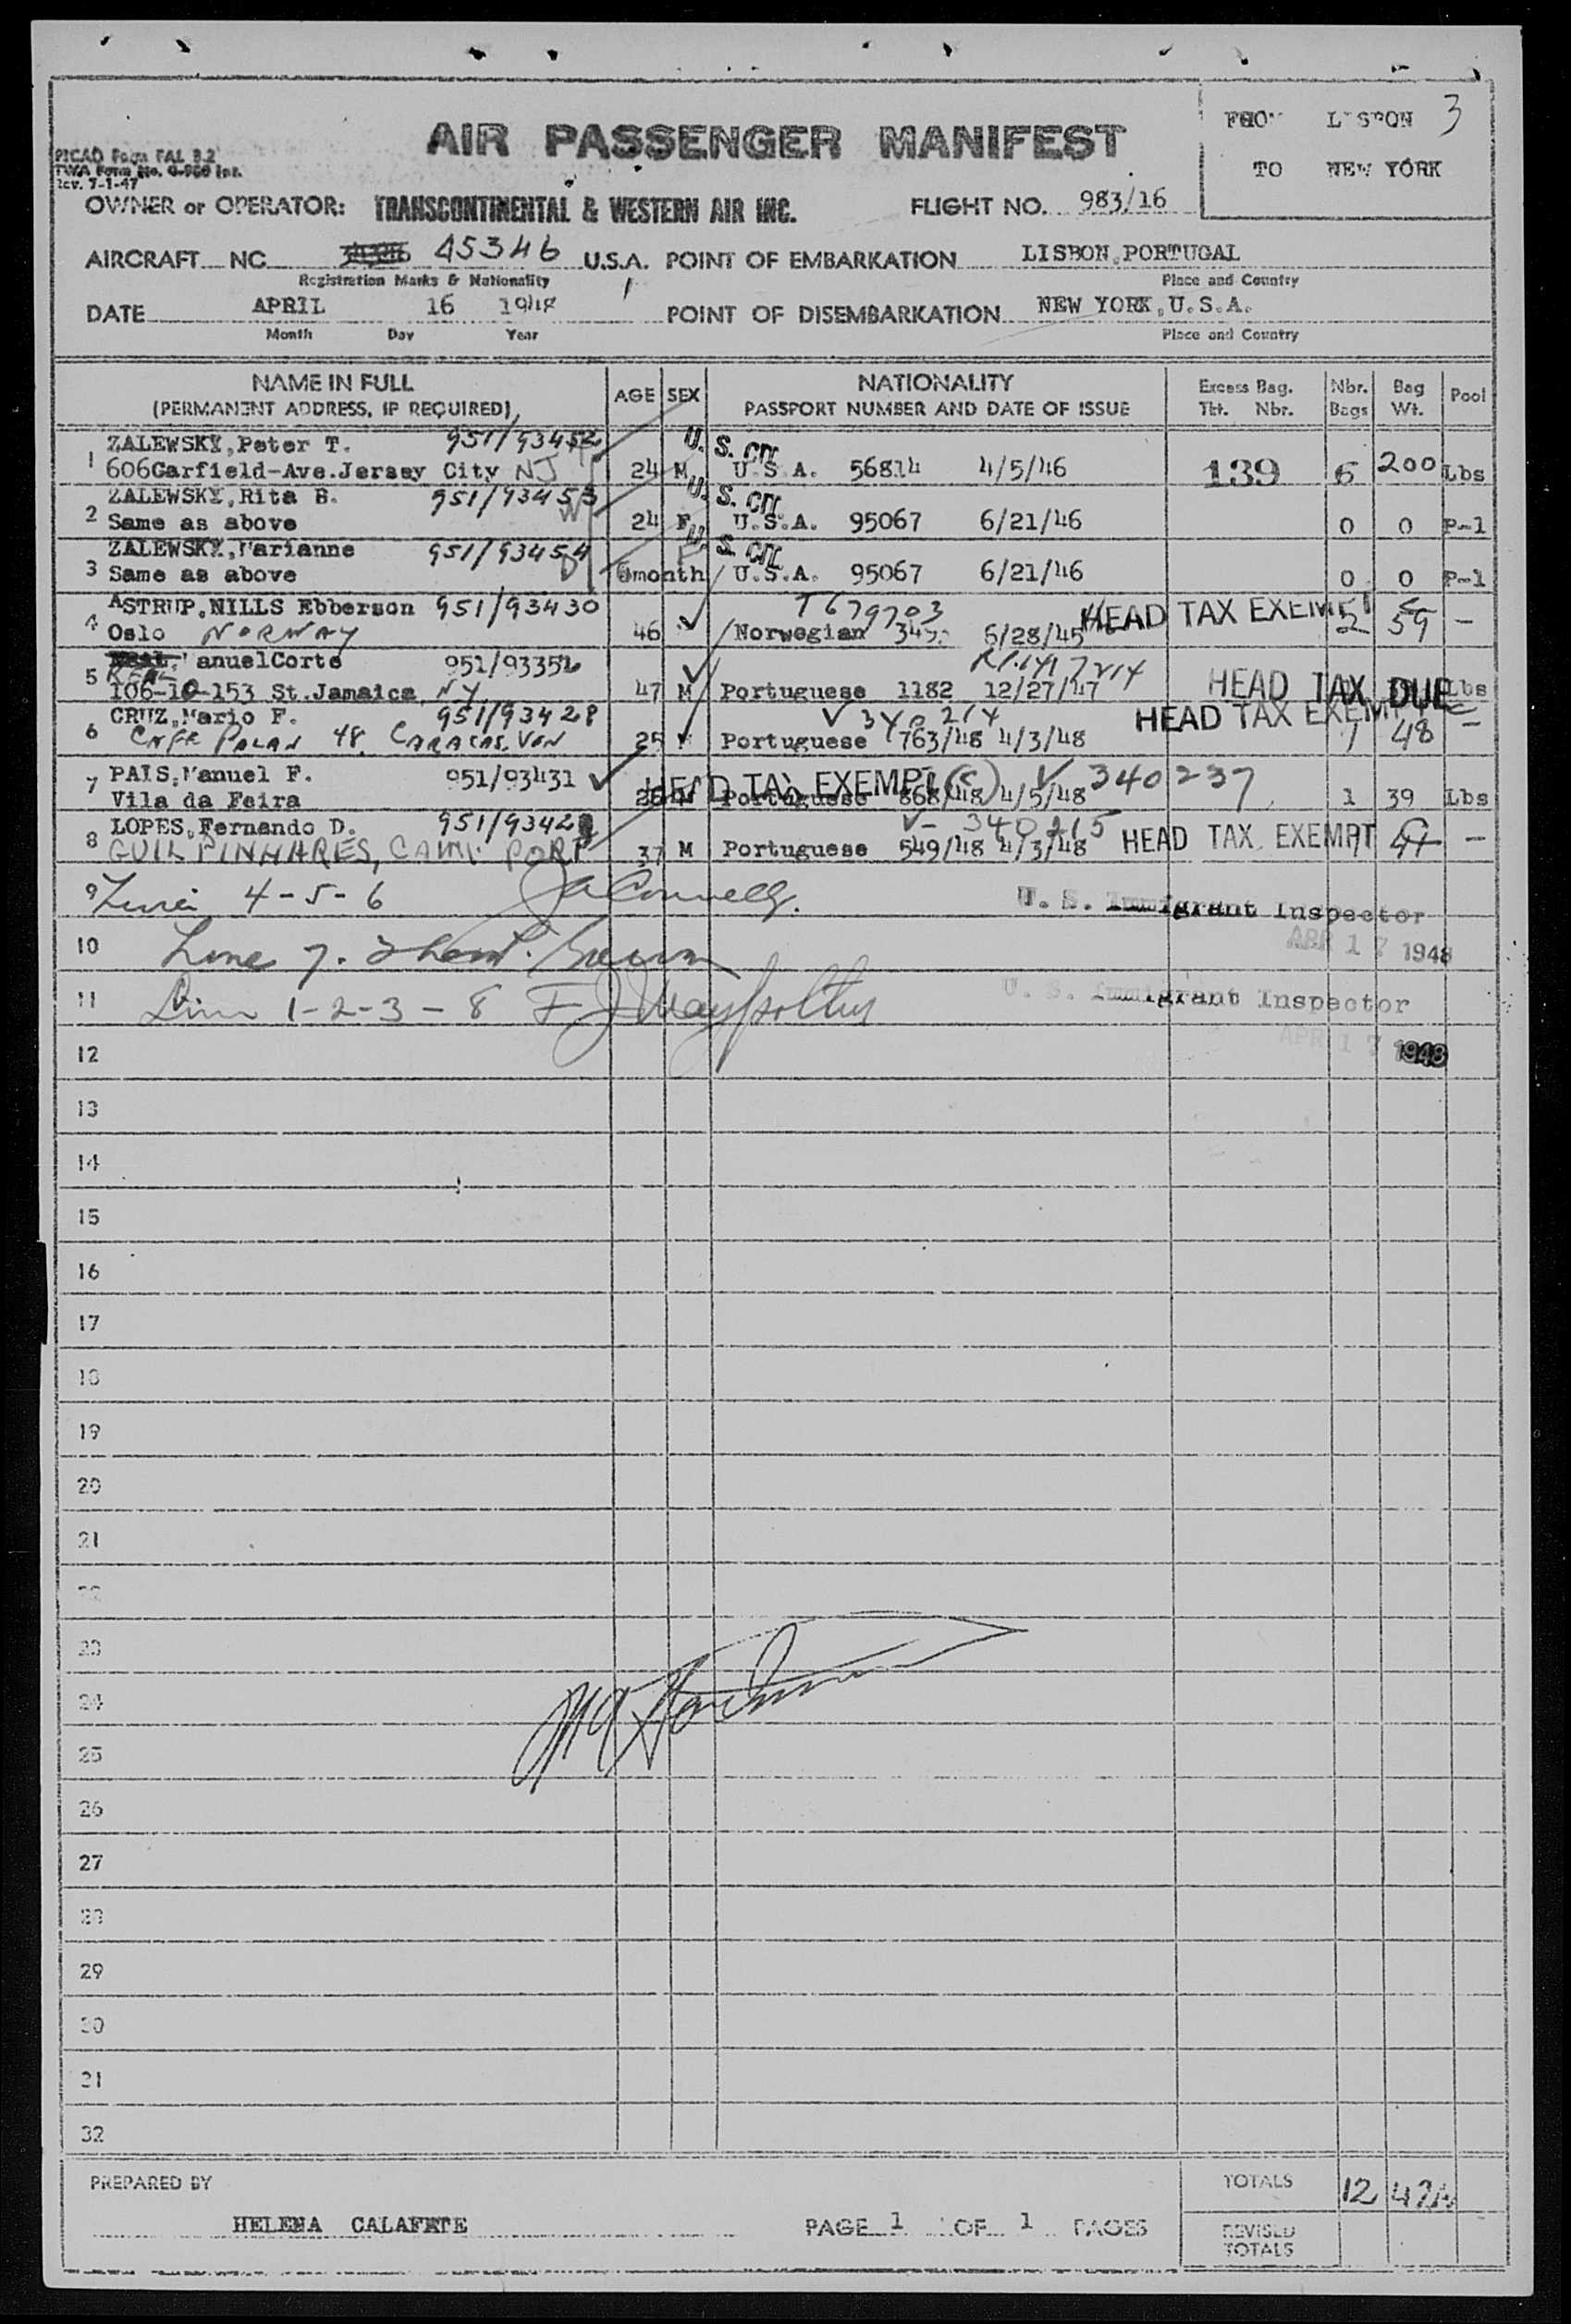 3
LISBON
TO NEW YORK
AIR PASSENGER MANIFEST
PICAO Form FAL B.2
TWA Form No.
Rev. 7-1-47
OWNER or OPERATOR: TRANSCONTINENTAL & WESTERN AIR INC. FLIGHT NO. 983/16
AIRCRAFT NC 45346 U.S.A. POINT OF EMBARKATION LISBON, PORTUGAL
Registration Marks & Nationality Place and Country
DATE APRIL 16 1948 POINT OF DISEMBARKATION NEW YORK, U.S.A.
Month Day Year Place and Country
NAME IN FULL AGE SEX NATIONALITY Excess Bag. Nbr. Bag Pool
(PERMANENT ADDRESS, IF REQUIRED) PASSPORT NUMBER AND DATE OF ISSUE Tkt. Nbr. Bags Wt.
1 ZALEWSKY, Peter T. 951/93452 U.S. CIT
606 Garfield-Ave. Jersey City NJ 24 M U.S.A. 56814 4/5/46 139 6 200 Lbs
2 ZALEWSKY, Rita B. 951/93453 U.S. CIT
Same as above 24 F U.S.A. 95067 6/21/46 0 0 P-1
3 ZALEWSKY, Marianne 951/93454 U.S. CIT
Same as above month U.S.A. 95067 6/21/46 0 0 P-1
4 ASTRUP, NILLS Ebberson 951/93430 T679703 HEAD TAX EXEMPT
Oslo NORWAY 46 Norwegian 6/28/45 2 59 -
5 REAL Manuel Corte 951/93352
106-10-153 St. Jamaica NY 47 M Portuguese 1182 12/27/47 HEAD TAX DUE Lbs
6 CRUZ, Mario F. 951/93428 HEAD TAX EXEMPT
48 CARACAS. VEN 25 M Portuguese 763/48 4/3/48 1 48 -
7 PAIS, Manuel F. 951/93431 HEAD TAX EXEMPT (S) 340237
Vila da Feira 26 M Portuguese 868/48 4/5/48 1 39 Lbs
8 LOPES, Fernando D. 340215
37 M Portuguese 549/48 4/3/48 HEAD TAX EXEMPT -
9 4-5-6 U. S. Immigrant Inspector
10 Line 7. APR 17 1948
11 1-2-3-8 U. S. Immigrant Inspector
12 APR 17 1948
13
14
15
16
17
18
19
20
21
23
24
25
26
27
29
30
32
PREPARED BY TOTALS 12
HELENA CALAFATE PAGE 1 OF 1 PAGES REVISED
TOTALS